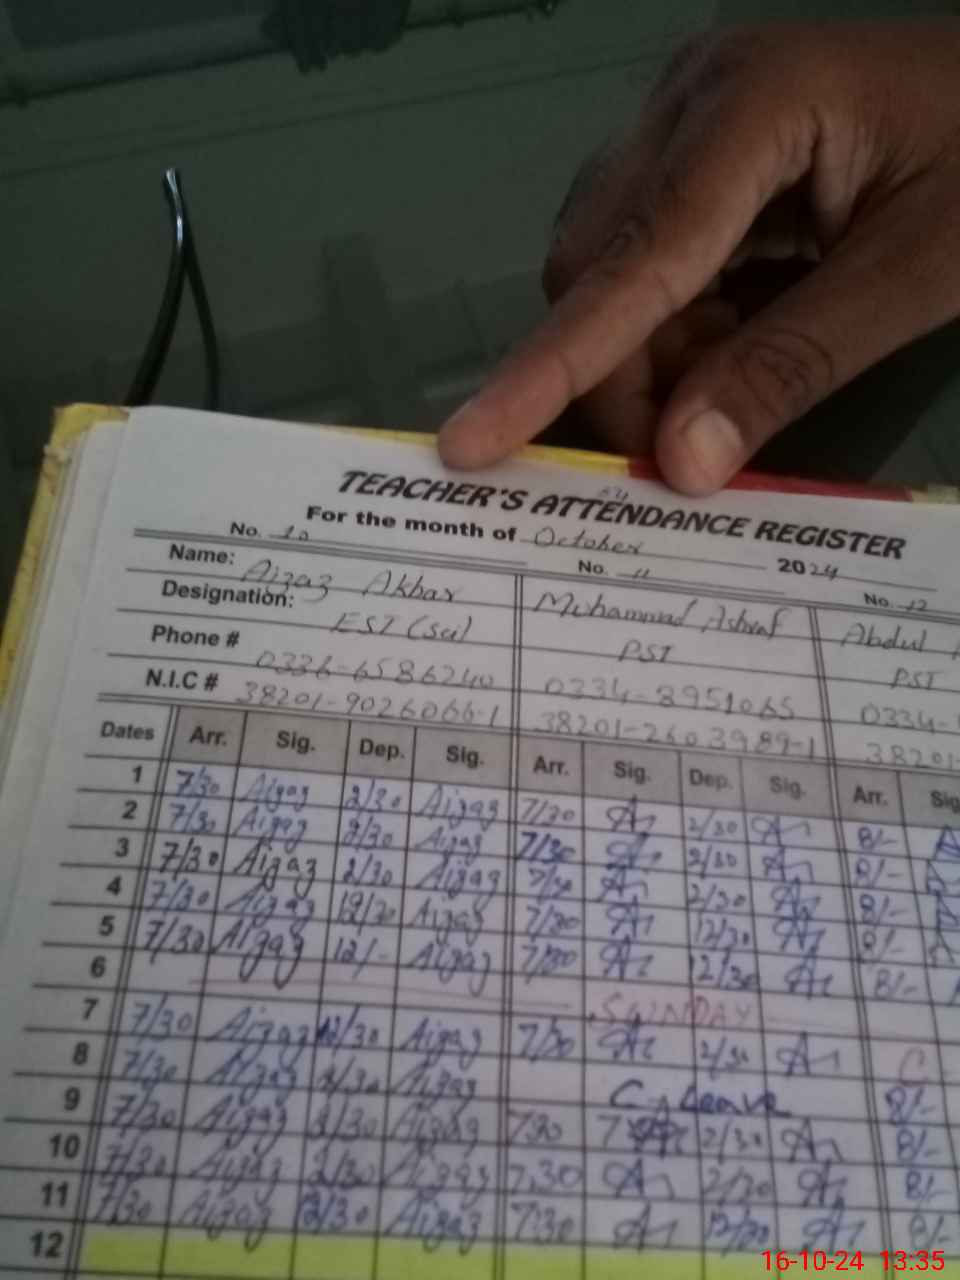 TEACHER'S ATTENDANCE REGISTER
For the month of October 2024
No. 10 No. 11 No. 12
Name: Aizaz Akbar Muhammad Ashraf Abdul
Designation: EST (Sci) PST PST
Phone # 0336-6586240 0334-8951065 0334-
N.I.C # 38201-9026066-1 38201-2603989-1 38201-
Dates Arr. Sig. Dep. Sig. Arr. Sig. Dep. Sig. Arr. Sig
1 7/30 Aizaz 2/30 Aizaz 7/30 2/30 8/-
2 7/30 Aizaz 2/30 Aizaz 7/30 2/30 8/-
3 7/30 Aizaz 2/30 Aizaz 7/30 2/30 8/-
4 7/30 Aizaz 12/30 Aizaz 7/30 12/30 8/-
5 7/30 Aizaz 12/- Aizaz 7/30 12/30 8/-
6 SUNDAY
7 7/30 Aizaz Aizaz 7/30 2/30 C
8 7/30 Aizaz 2/30 Aizaz C, Leave 8/-
9 7/30 Aizaz 2/30 Aizaz 730 2/30 8/-
10 7/30 Aizaz 2/30 Aizaz 7.30 2/30 8/-
11 7/30 Aizaz 12/30 Aizaz 7:30 12/30 8/-
12
16-10-24 13:35